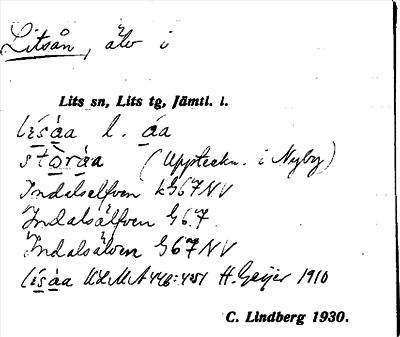 Litsån, älv i
Lits sn, Lits tg, Jämtl. l.
lı̄sáa l. áa
stòráa (Uppteckn. i Nyby)
Indalselfven kG67NV
Indalsälfven G67
Indalsälven G67NV
lísáa ULMA 448:451 H. Geijer 1910
C. Lindberg 1930.